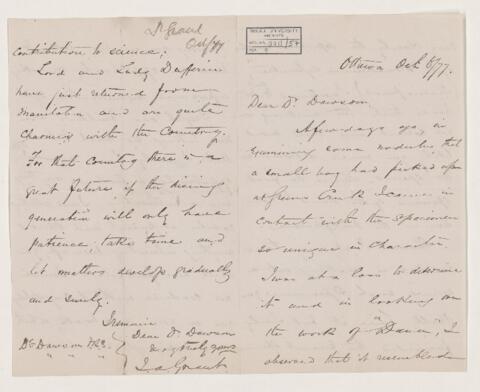 Ottawa Oct 6/77.
Dear Dr Dawson
A few days ago, in
examining some nodules, that
a small boy had picked up
at Greens Creek, I came in
contact with the specimen
so unique in character.
I was at a loss to determine
it and in looking over
the work of "Dana", I
observed that it resembled
Dr Grant
Oct/77
contribution to science.
Lord and Lady Dufferin
have just returned from
Manitoba and are quite
charmed with the Country.
For that Country there is a
great future, if the rising
generation will only have
patience, take time and
let matters develop gradually
and surely.
I remain
Dear Dr Dawson
truly yours
J. A. Grant
Dr Dawson